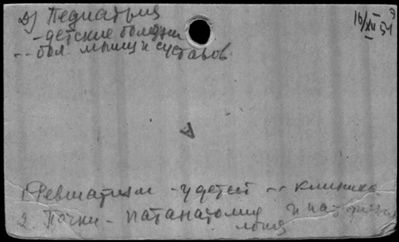 д) Педиатрия
- детские болезни
-- бол. мышц и суставов
16/XII 59
А
1) Ревматизм - у детей -- клиника
2. Почки - патанатомия и патфизио
логия